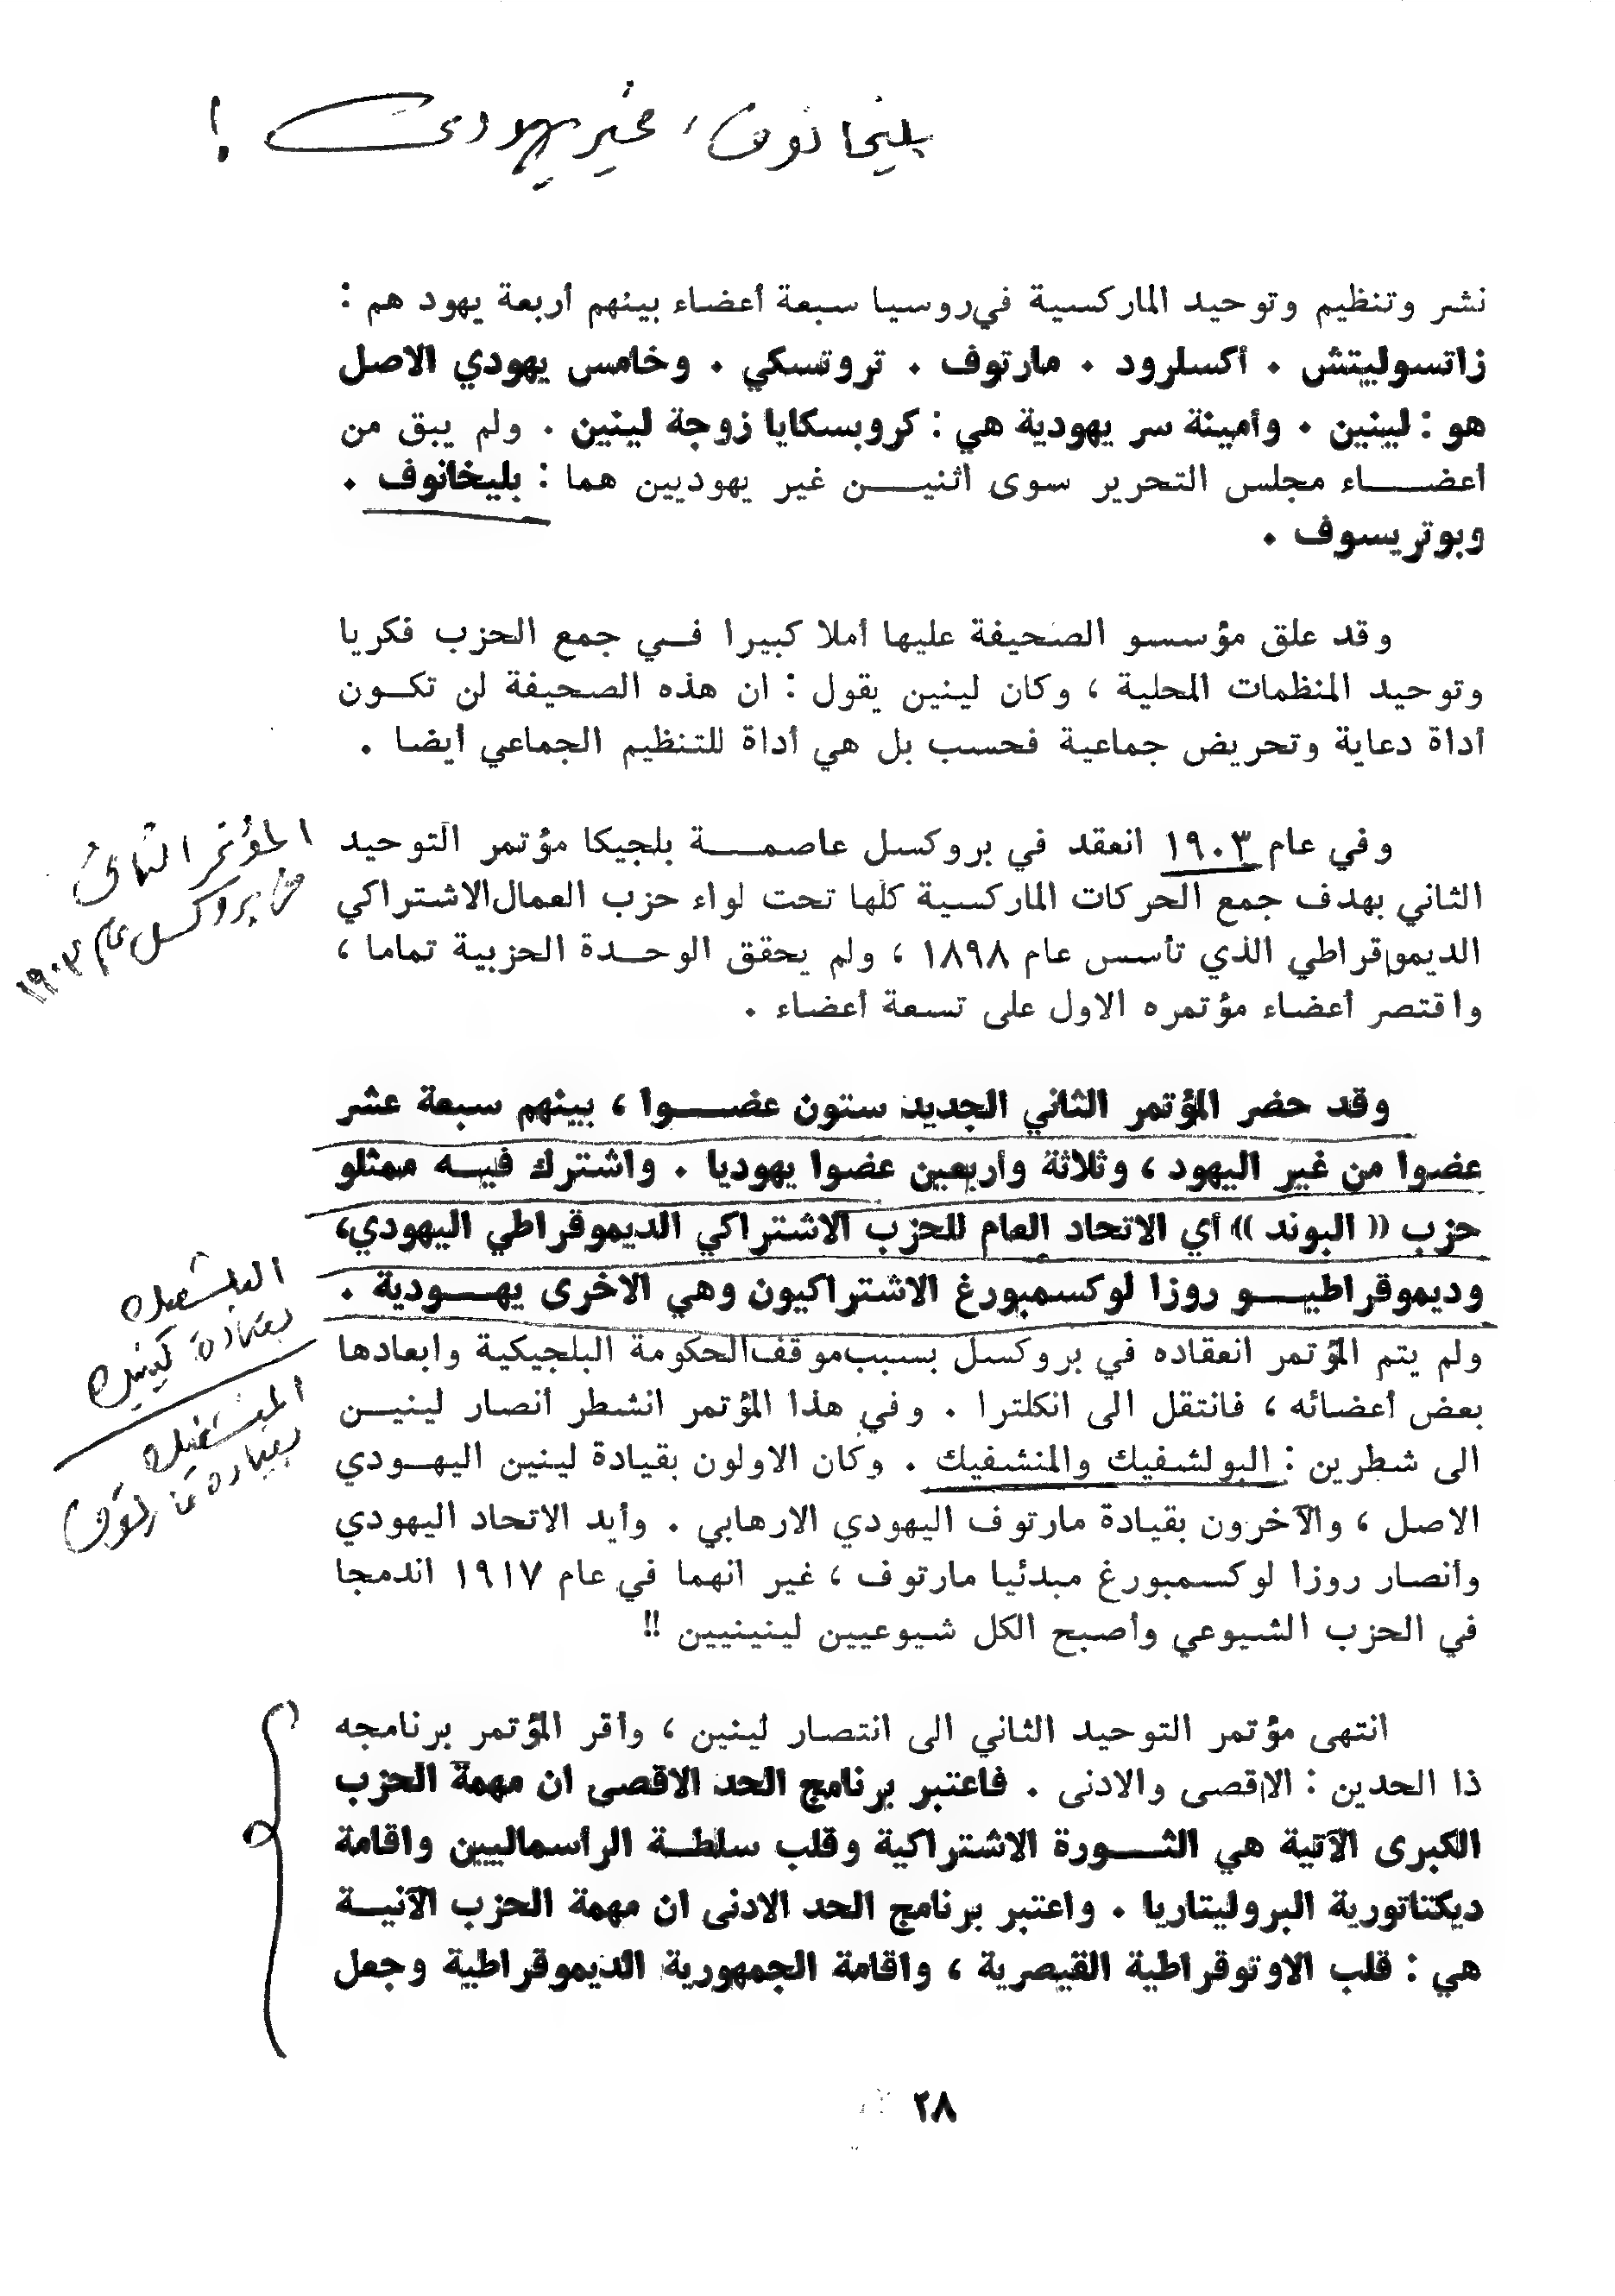 بليخانوف، غير يهودي !
نشر وتنظيم وتوحيد الماركسية في روسيا سبعة أعضاء بينهم أربعة يهود هم :
زاتسوليتش . أكسلرود . مارتوف . تروتسكي . وخامس يهودي الاصل
هو : لينين . وأمينة سر يهودية هي : كروبسكايا زوجة لينين . ولم يبق من
أعضـــاء مجلس التحرير سوى اثنيـــن غير يهوديين هما : بليخانوف .
وبوتريسوف .
وقد علق مؤسسو الصحيفة عليها أملا كبيرا فـي جمع الحزب فكريا
وتوحيد المنظمات المحلية ، وكان لينين يقول : ان هذه الصحيفة لن تكـون
أداة دعاية وتحريض جماعية فحسب بل هي أداة للتنظيم الجماعي أيضا .
وفي عام ١٩٠٣ انعقد في بروكسل عاصمـــة بلجيكا مؤتمر التوحيد
الثاني بهدف جمع الحركات الماركسية كلها تحت لواء حزب العمال الاشتراكي
الديموقراطي الذي تأسس عام ١٨٩٨ ، ولم يحقق الوحـدة الحزبية تماما ،
واقتصر أعضاء مؤتمره الاول على تسعة أعضاء .
المؤتمر الثاني
في بروكسل عام ١٩٠٣
وقد حضر المؤتمر الثاني الجديد ستون عضـــوا ، بينهم سبعة عشر
عضوا من غير اليهود ، وثلاثة وأربعين عضوا يهوديا . واشترك فيـه ممثلو
حزب (( البوند )) أي الاتحاد العام للحزب الاشتراكي الديموقراطي اليهودي،
وديموقراطيـــو روزا لوكسمبورغ الاشتراكيون وهي الاخرى يهـــودية .
ولم يتم المؤتمر انعقاده في بروكسل بسبب موقف الحكومة البلجيكية وابعادها
بعض أعضائه ، فانتقل الى انكلترا . وفي هذا المؤتمر انشطر أنصار لينيـن
الى شطرين : البولشفيك والمنشفيك . وكان الاولون بقيادة لينين اليهـودي
الاصل ، والآخرون بقيادة مارتوف اليهودي الارهابي . وأيد الاتحاد اليهودي
وأنصار روزا لوكسمبورغ مبدئيا مارتوف ، غير انهما في عام ١٩١٧ اندمجا
في الحزب الشيوعي وأصبح الكل شيوعيين لينينيين !!
البلشفيك
بقيادة لينين
المنشفيك
بقيادة مارتوف
انتهى مؤتمر التوحيد الثاني الى انتصار لينين ، وأقر المؤتمر برنامجه
ذا الحدين : الاقصى والادنى . فاعتبر برنامج الحد الاقصى ان مهمة الحزب
الكبرى الآتية هي الثـــورة الاشتراكية وقلب سلطـة الرأسماليين واقامة
ديكتاتورية البروليتاريا . واعتبر برنامج الحد الادنى ان مهمة الحزب الآنيـة
هي : قلب الاوتوقراطية القيصرية ، واقامة الجمهورية الديموقراطية وجعل
٢٨